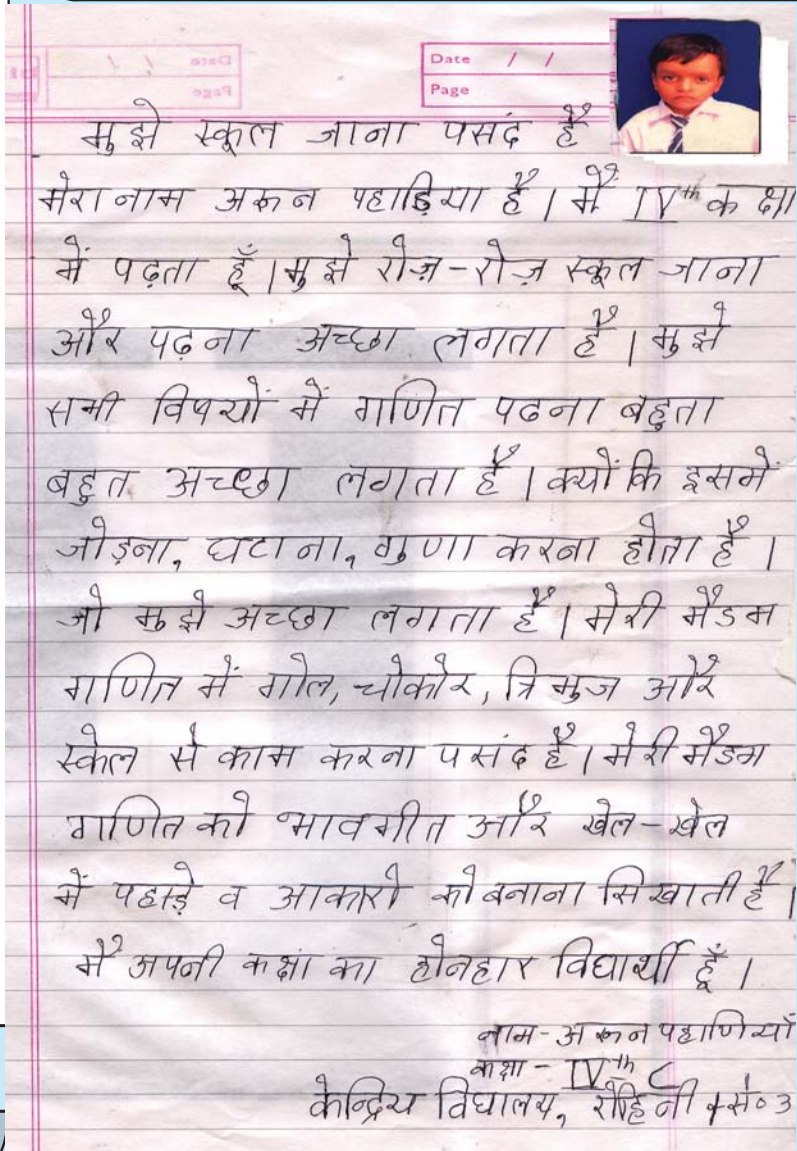 Date / /
Page
मुझे स्कूल जाना पसंद है
मेरा नाम अरून पहाड़िया है। मैं IVth कक्षा
में पढ़ता हूँ। मुझे रोज़-रोज़ स्कूल जाना
और पढ़ना अच्छा लगता है। मुझे
सभी विषयों में गणित पढना बहुता
बहुत अच्छा लगता है। क्योंकि इसमें
जोड़ना, घटाना, गुणा करना होता है।
जो मुझे अच्छा लगता है। मेरी मैडम
गणित में गोल, चोकोर, त्रिभुज और
स्केल से काम करना पसंद है। मेरी मैडम
गणित को भावगीत और खेल-खेल
में पहाड़े व आकारो को बनाना सिखाती है।
मैं अपनी कक्षा का होनहार विद्यार्थी हूँ।
नाम- अरून पहाणियाँ
कक्षा - IVth C
केन्द्रिय विद्यालय, रोहिनी से० 3